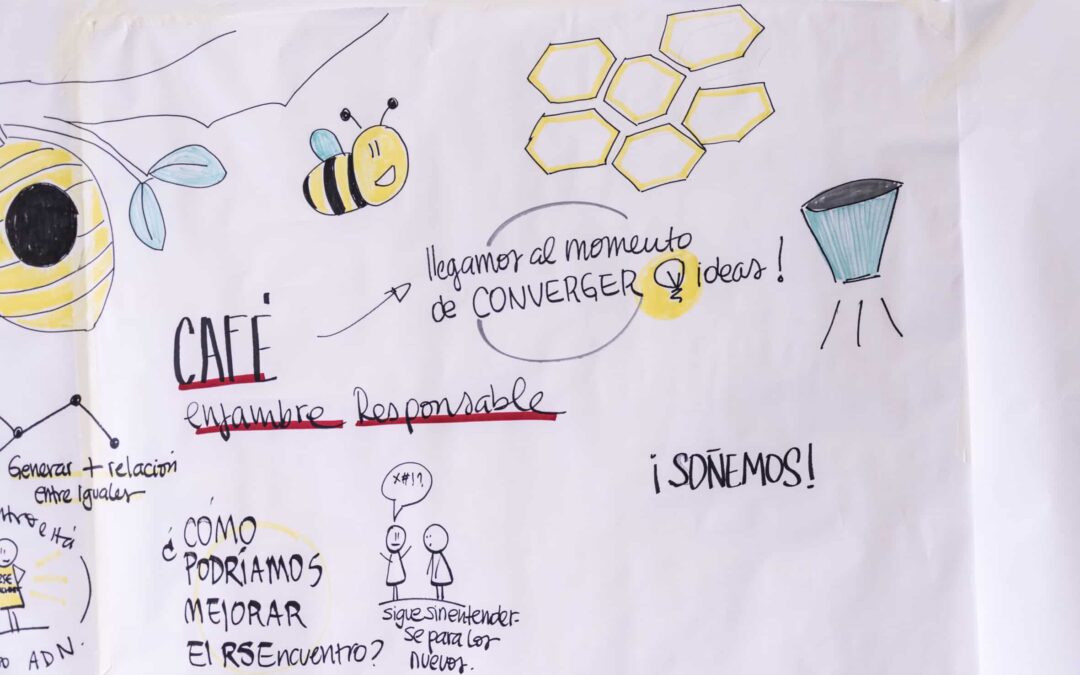 llegamos al momento
de CONVERGER ideas!
CAFÉ
enjambre Responsable
¡SOÑEMOS!
Generar + relación
entre iguales
está
RSE
ADN.
¿CÓMO
PODRÍAMOS
MEJORAR
El RSEncuentro?
x#!?
sigue sin entender-
se para los
nuevos.